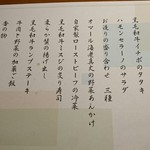 黒毛和牛イチボのタタキ
ハモンセラーノのサラダ
お造りの盛り合わせ 三種
オマール海老真丈の野菜あんかけ
自家製ローストビーフの冷菜
黒毛和牛ミスジの炙り寿司
柔らか蟹の揚げ出し
黒毛和牛ランプステーキ
牛肉と野菜の細巻ご飯
香の物